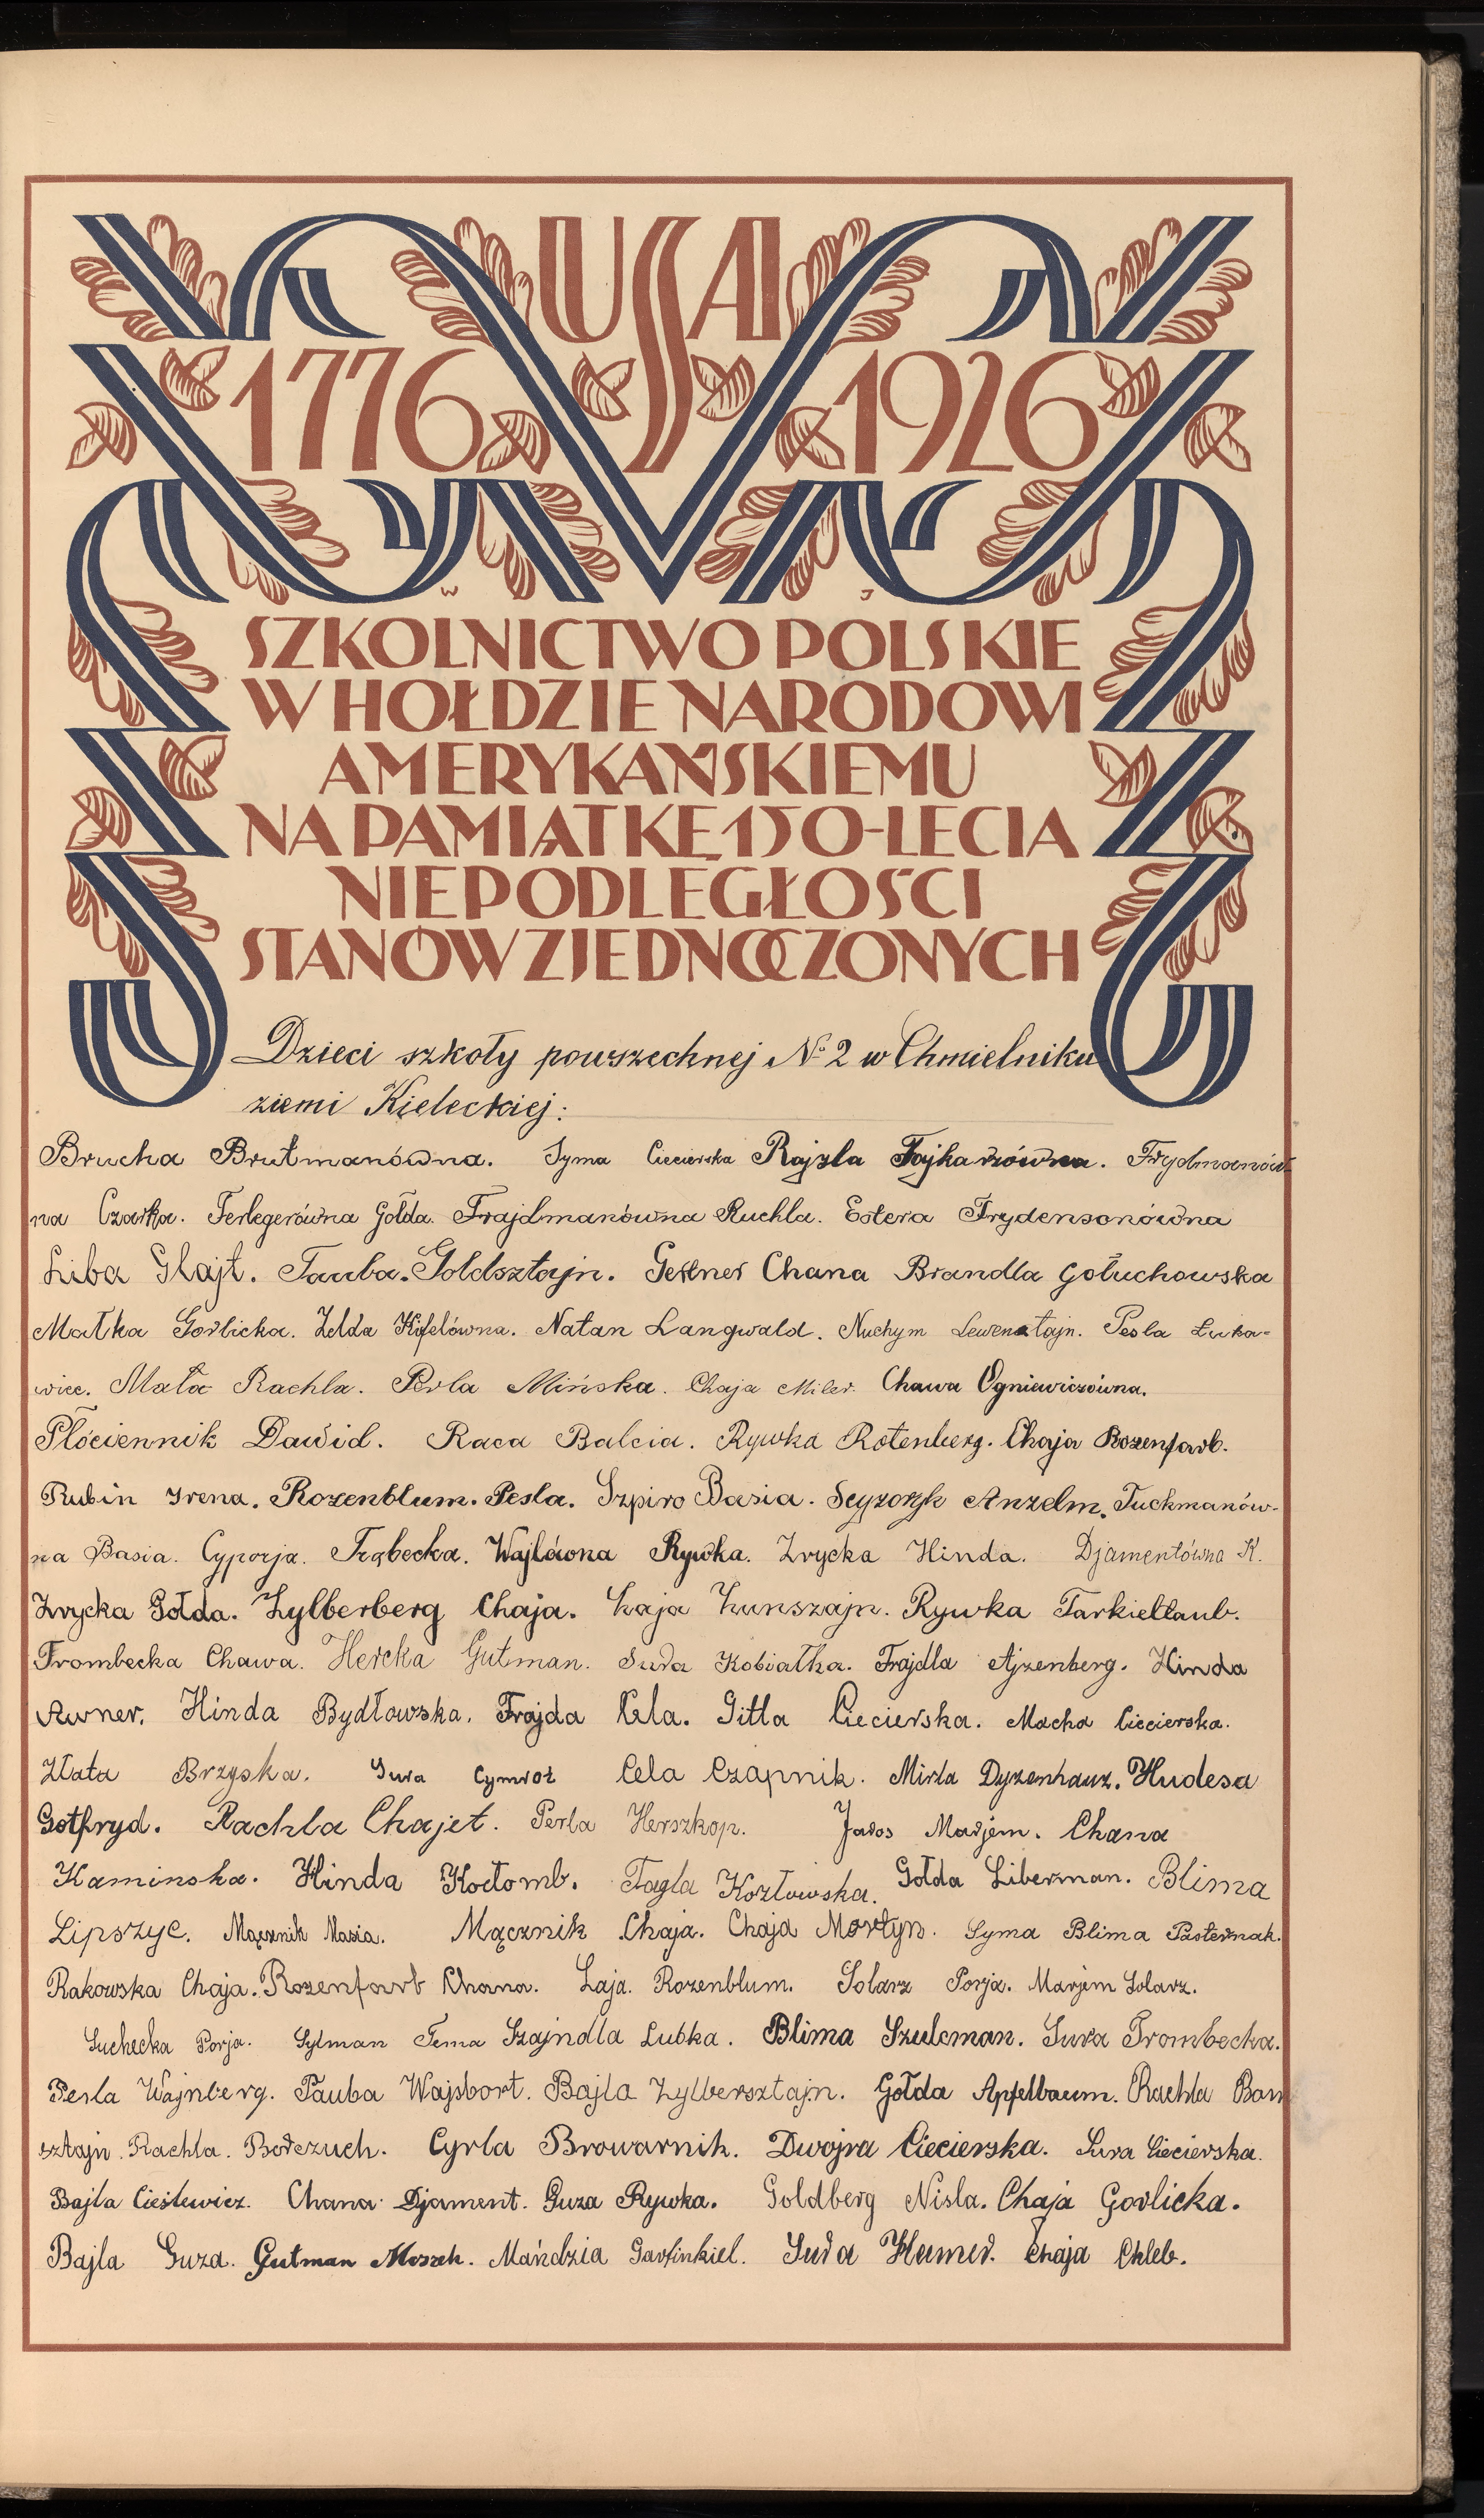 USA
1776 1926
W J
SZKOLNICTWO POLSKIE
W HOŁDZIE NARODOWI
AMERYKAŃSKIEMU
NA PAMIĄTKĘ 150-LECIA
NIEPODLEGŁOŚCI
STANÓW ZJEDNOCZONYCH
Dzieci szkoły powszechnej № 2 w Chmielniku
ziemi Kieleckiej:
Brucha Brutmanówna. Syma Ciecierska Rajzla Fajkarzówna. Frydmanów-
na Czarka. Ferlegerówna Gołda. Frajdmanówna Ruchla. Estera Frydensonówna
Liba Glajt. Tauba. Goldsztajn. Chana Brandla Gołuchowska
Małka Gorlicka. Zelda Kifelówna. Natan Langwald. Nuchym Lewensztajn. Pesla Łuka-
wiec. Mała Rachla. Perla Mińska. Chaja Miler. Chawa Ogniewiczówna.
Płóciennik Dawid. Raca Balcia. Rywka Rotenberg. Chaja Rozenfarb.
Rubin Irena. Rozenblum. Pesla. Szpiro Basia. Anzelm. Tuckmanów-
na Basia. Cyporja. Trąbecka. Wajlówna Rywka. Zrycka Hinda. Djamentówna R.
Zrycka Gołda. Zylberberg Chaja. Łaja Zunszajn. Rywka Tarkieltaub.
Trombecka Chawa. Hercka Gutman. Sura Kobiałka. Frajdla Ajzenberg. Hinda
Awner. Hinda Bydłowska. Frajda Cela. Gitla Ciecierska. Macha Ciecierska.
Złata Brzyska. Sura Cymrot Cela Czapnik. Mirla Dyzenhauz. Hudesa
Gotfryd. Rachla Chajet. Perla Herszkop. Jaros Marjem. Chana
Kaminska. Hinda Kotłomb. Fagla Kozłowska. Gołda Liberman. Blima
Lipszyc. Mącznik Masia. Mącznik Chaja. Chaja Mortyn. Syma Blima Pasternak.
Rakowska Chaja. Rozenfarb Chana. Łaja. Rozenblum. Solarz Porja. Marjem Solarz.
Suchecka Porja. Sylman Tema Szajndla Lubka. Blima Szulcman. Sura Trombecka.
Pesla Wajnberg. Tauba Wajsbort. Bajla Zylbersztajn. Gołda Apfelbaum. Rachla Born
sztajn. Rachla. Borczuch. Cyrla Browarnik. Dwojra Ciecierska. Sura Ciecierska.
Bajla Cieślewicz. Chana Djament. Guza Rywka. Goldberg Nisla. Chaja Gorlicka.
Bajla Guza. Gutman Moszek. Mańdzia Garfinkiel. Sura Hamer. Chaja Chleb.